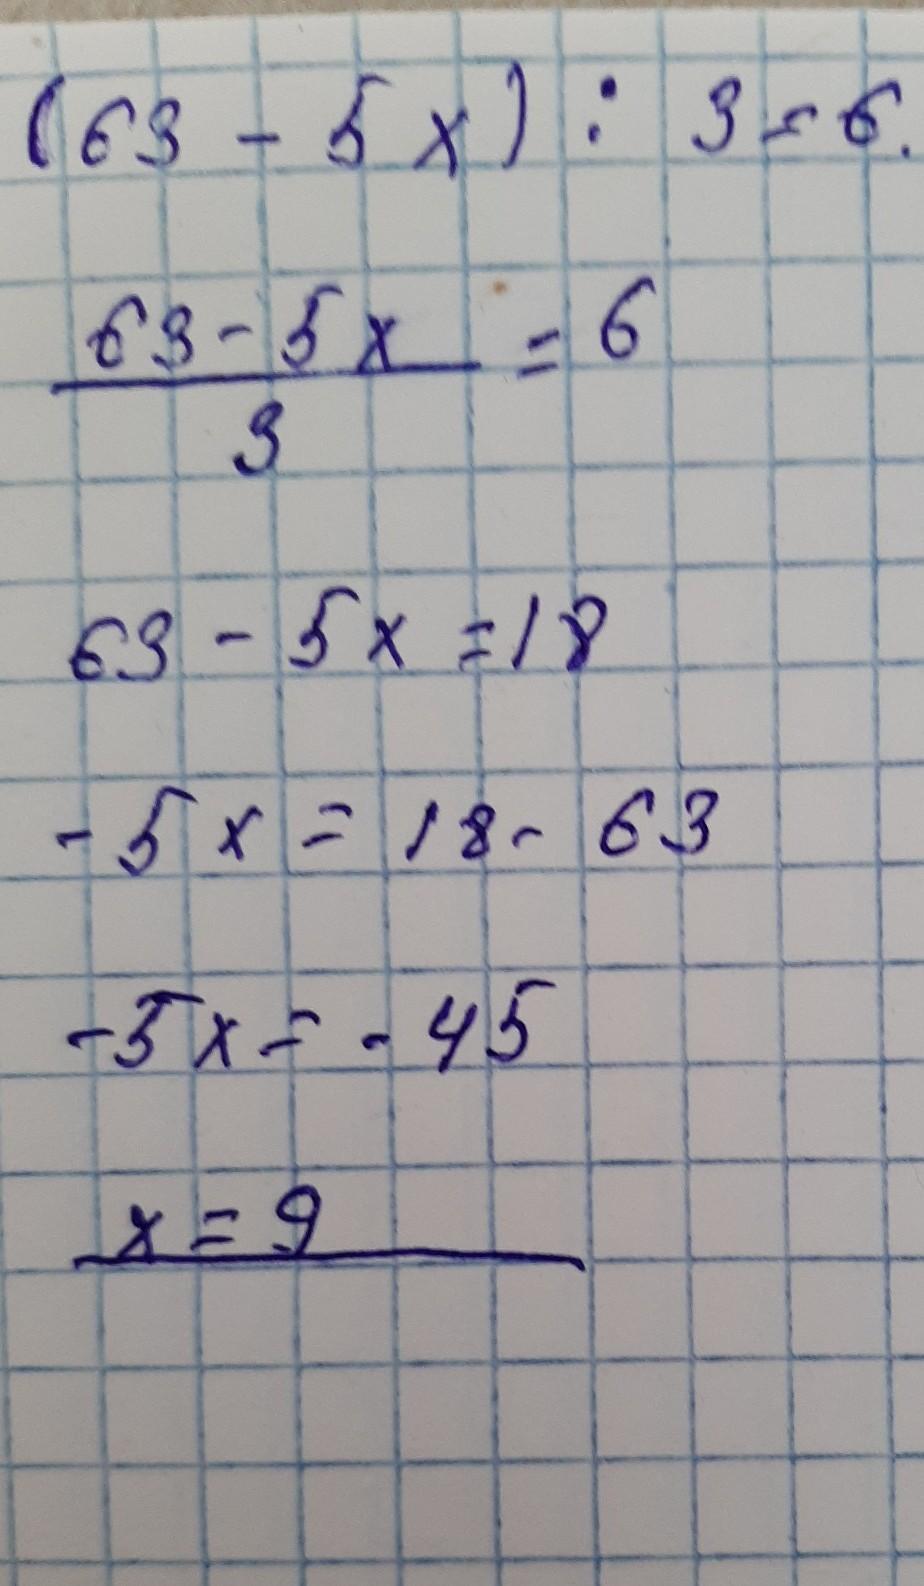 (63 - 5x) : 3 = 6.
63 - 5x = 6
3
63 - 5x = 18
-5x = 18 - 63
-5x = -45
x = 9